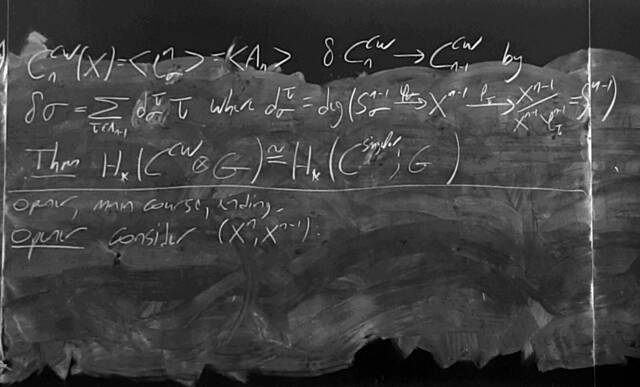 C_n^{CW}(X) = <L_σ^n> = <A_n>   δ C_n^{CW} → C_{n-1}^{CW} by
δσ = ∑_{τ∈A_{n-1}} d_σ^τ τ where d_σ^τ = deg(S_σ^{n-1} → X^{n-1} → X^{n-1}/X^{n-1}\ = S^{n-1})
Thm H_*(C^{CW} ⊗ G) ≅ H_*(C^{singular}; G)
opener, main course, ending.
opener consider (X^n, X^{n-1}).